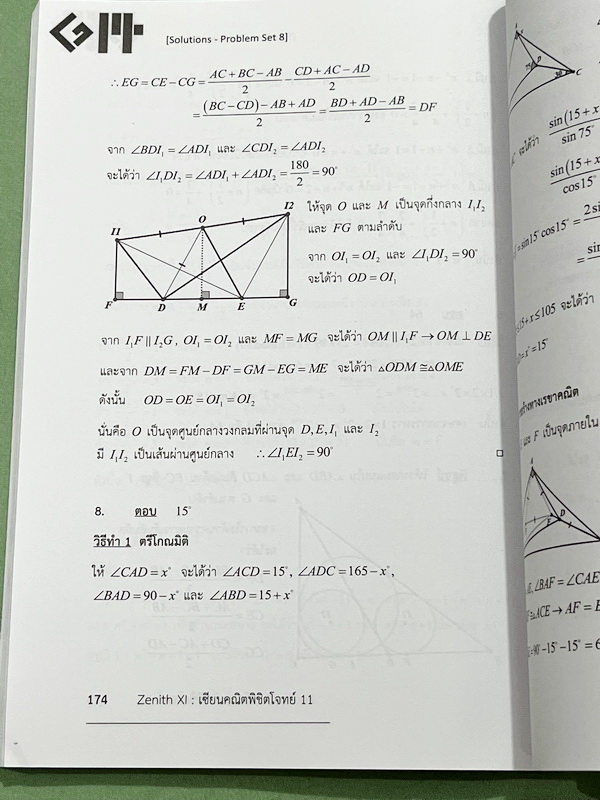 [Solutions - Problem Set 8]
∴ EG = CE − CG = (AC + BC − AB)/2 − (CD + AC − AD)/2
= ((BC − CD) − AB + AD)/2 = (BD + AD − AB)/2 = DF
จาก ∠BDI₁ = ∠ADI₁ และ ∠CDI₂ = ∠ADI₂
จะได้ว่า ∠I₁DI₂ = ∠ADI₁ + ∠ADI₂ = 180/2 = 90°
I1 O I2
F D M E G
ให้จุด O และ M เป็นจุดกึ่งกลาง I₁I₂
และ FG ตามลำดับ
จาก OI₁ = OI₂ และ ∠I₁DI₂ = 90°
จะได้ว่า OD = OI₁
จาก I₁F ∥ I₂G, OI₁ = OI₂ และ MF = MG จะได้ว่า OM ∥ I₁F → OM ⊥ DE
และจาก DM = FM − DF = GM − EG = ME จะได้ว่า △ODM ≅ △OME
ดังนั้น OD = OE = OI₁ = OI₂
นั่นคือ O เป็นจุดศูนย์กลางวงกลมที่ผ่านจุด D, E, I₁ และ I₂
มี I₁I₂ เป็นเส้นผ่านศูนย์กลาง ∴ ∠I₁EI₂ = 90°
8. ตอบ 15°
วิธีทำ 1 ตรีโกณมิติ
ให้ ∠CAD = x° จะได้ว่า ∠ACD = 15°, ∠ADC = 165 − x°,
∠BAD = 90 − x° และ ∠ABD = 15 + x°
174 Zenith XI : เซียนคณิตพิชิตโจทย์ 11
จะได้ว่า sin(15 + x/sin 75°
sin(15 + x/cos15°
= sin15° cos15° = 2si
= sin
15 + x ≤ 105 จะได้ว่า
= x° = 15°
ทางเรขาคณิต
F เป็นจุดภายใน
∠BAF = ∠CAE
ACE → AF = E
= 90 − 15° − 15° = 6